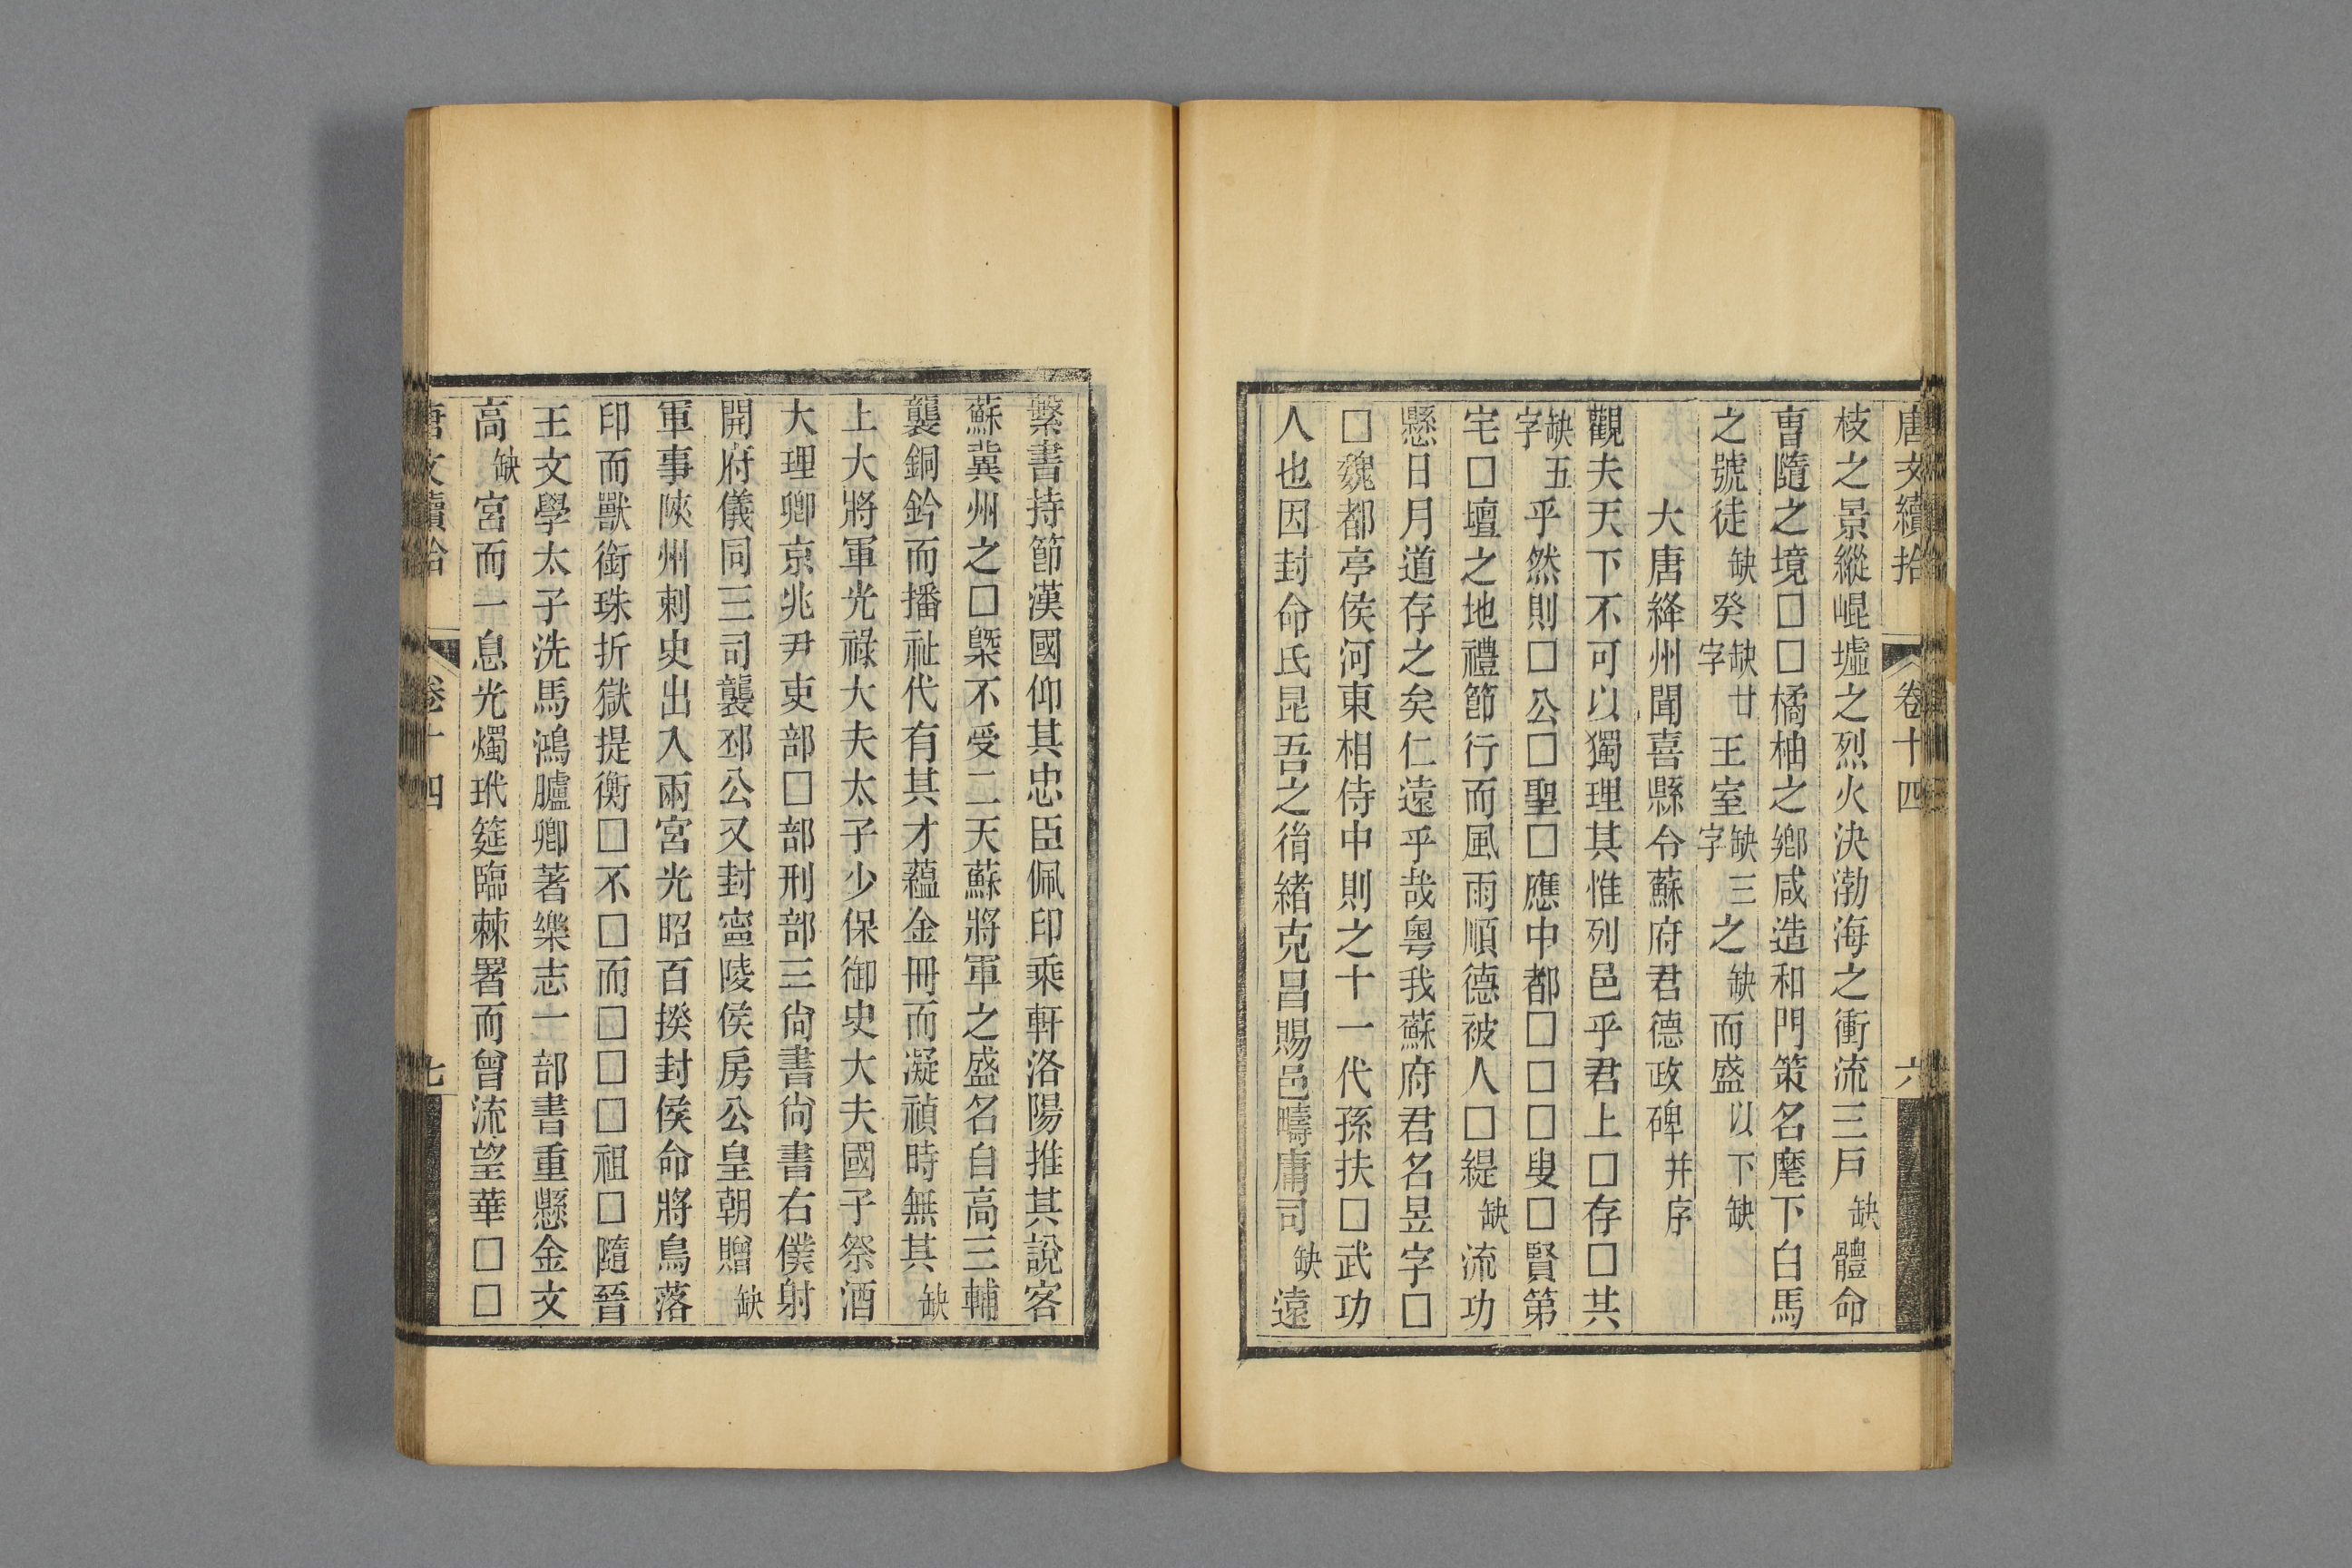 唐文續拾 卷十四 六
枝之景縱崐墟之烈火決渤海之衝流三戶缺體命
曺隨之境□□橘柚之鄉咸造和門策名麾下白馬
之號徒缺癸缺廿字王室缺三字之缺而盛以下缺
大唐絳州聞喜縣令蘇府君德政碑并序
觀夫天下不可以獨理其惟列邑乎君上□存□其
缺五字乎然則□公□聖□應中都□□□叟□賢第
宅□壇之地禮節行而風雨順德被人□緹缺流功
懸日月道存之矣仁遠乎哉粵我蘇府君名昱字□
□魏都亭侯河東相侍中則之十一代孫扶□武功
人也因封命氏昆吾之㣧緒克昌賜邑疇庸司缺遠
繫書持節漢國仰其忠臣佩印乘軒洛陽推其說客
蘇冀州之□槩不受二天蘇將軍之盛名自高三輔
襲銅鈐而播祉代有其才蘊金冊而凝禎時無其缺
上大將軍光祿大夫太子少保御史大夫國子祭酒
大理卿京兆尹吏部□部刑部三尙書尙書右僕射
開府儀同三司襲邳公又封寧陵侯房公皇朝贈缺
軍事陝州刺史出入兩宮光昭百揆封侯命將鳥落
印而獸銜珠折獄提衡□不□而□□□祖□隨晉
王文學太子洗馬鴻臚卿著樂志一部書重懸金文
高缺宮而一息光燭玳筵臨棘署而曾流望華□□
唐文續拾 卷十四 七